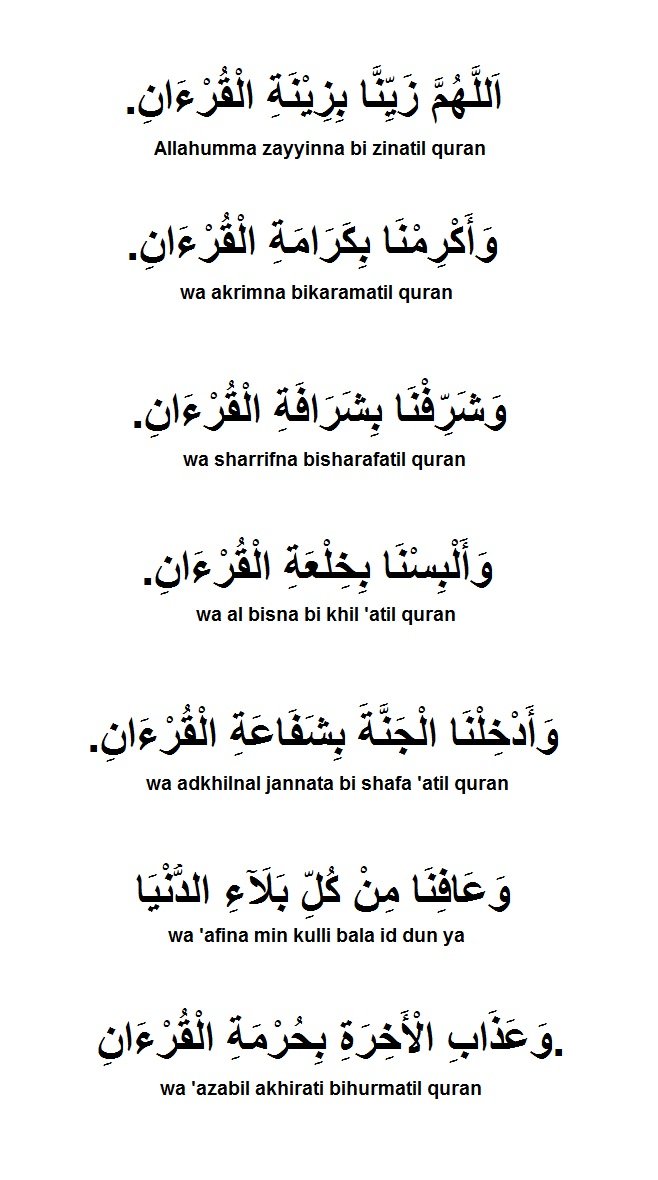 اَللَّهُمَّ زَيِّنَّا بِزِيْنَةِ الْقُرْءَانِ.
Allahumma zayyinna bi zinatil quran
وَأَكْرِمْنَا بِكَرَامَةِ الْقُرْءَانِ.
wa akrimna bikaramatil quran
وَشَرِّفْنَا بِشَرَافَةِ الْقُرْءَانِ.
wa sharrifna bisharafatil quran
وَأَلْبِسْنَا بِخِلْعَةِ الْقُرْءَانِ.
wa al bisna bi khil 'atil quran
وَأَدْخِلْنَا الْجَنَّةَ بِشَفَاعَةِ الْقُرْءَانِ.
wa adkhilnal jannata bi shafa 'atil quran
وَعَافِنَا مِنْ كُلِّ بَلَآءِ الدُّنْيَا
wa 'afina min kulli bala id dun ya
.وَعَذَابِ الْأَخِرَةِ بِحُرْمَةِ الْقُرْءَانِ
wa 'azabil akhirati bihurmatil quran